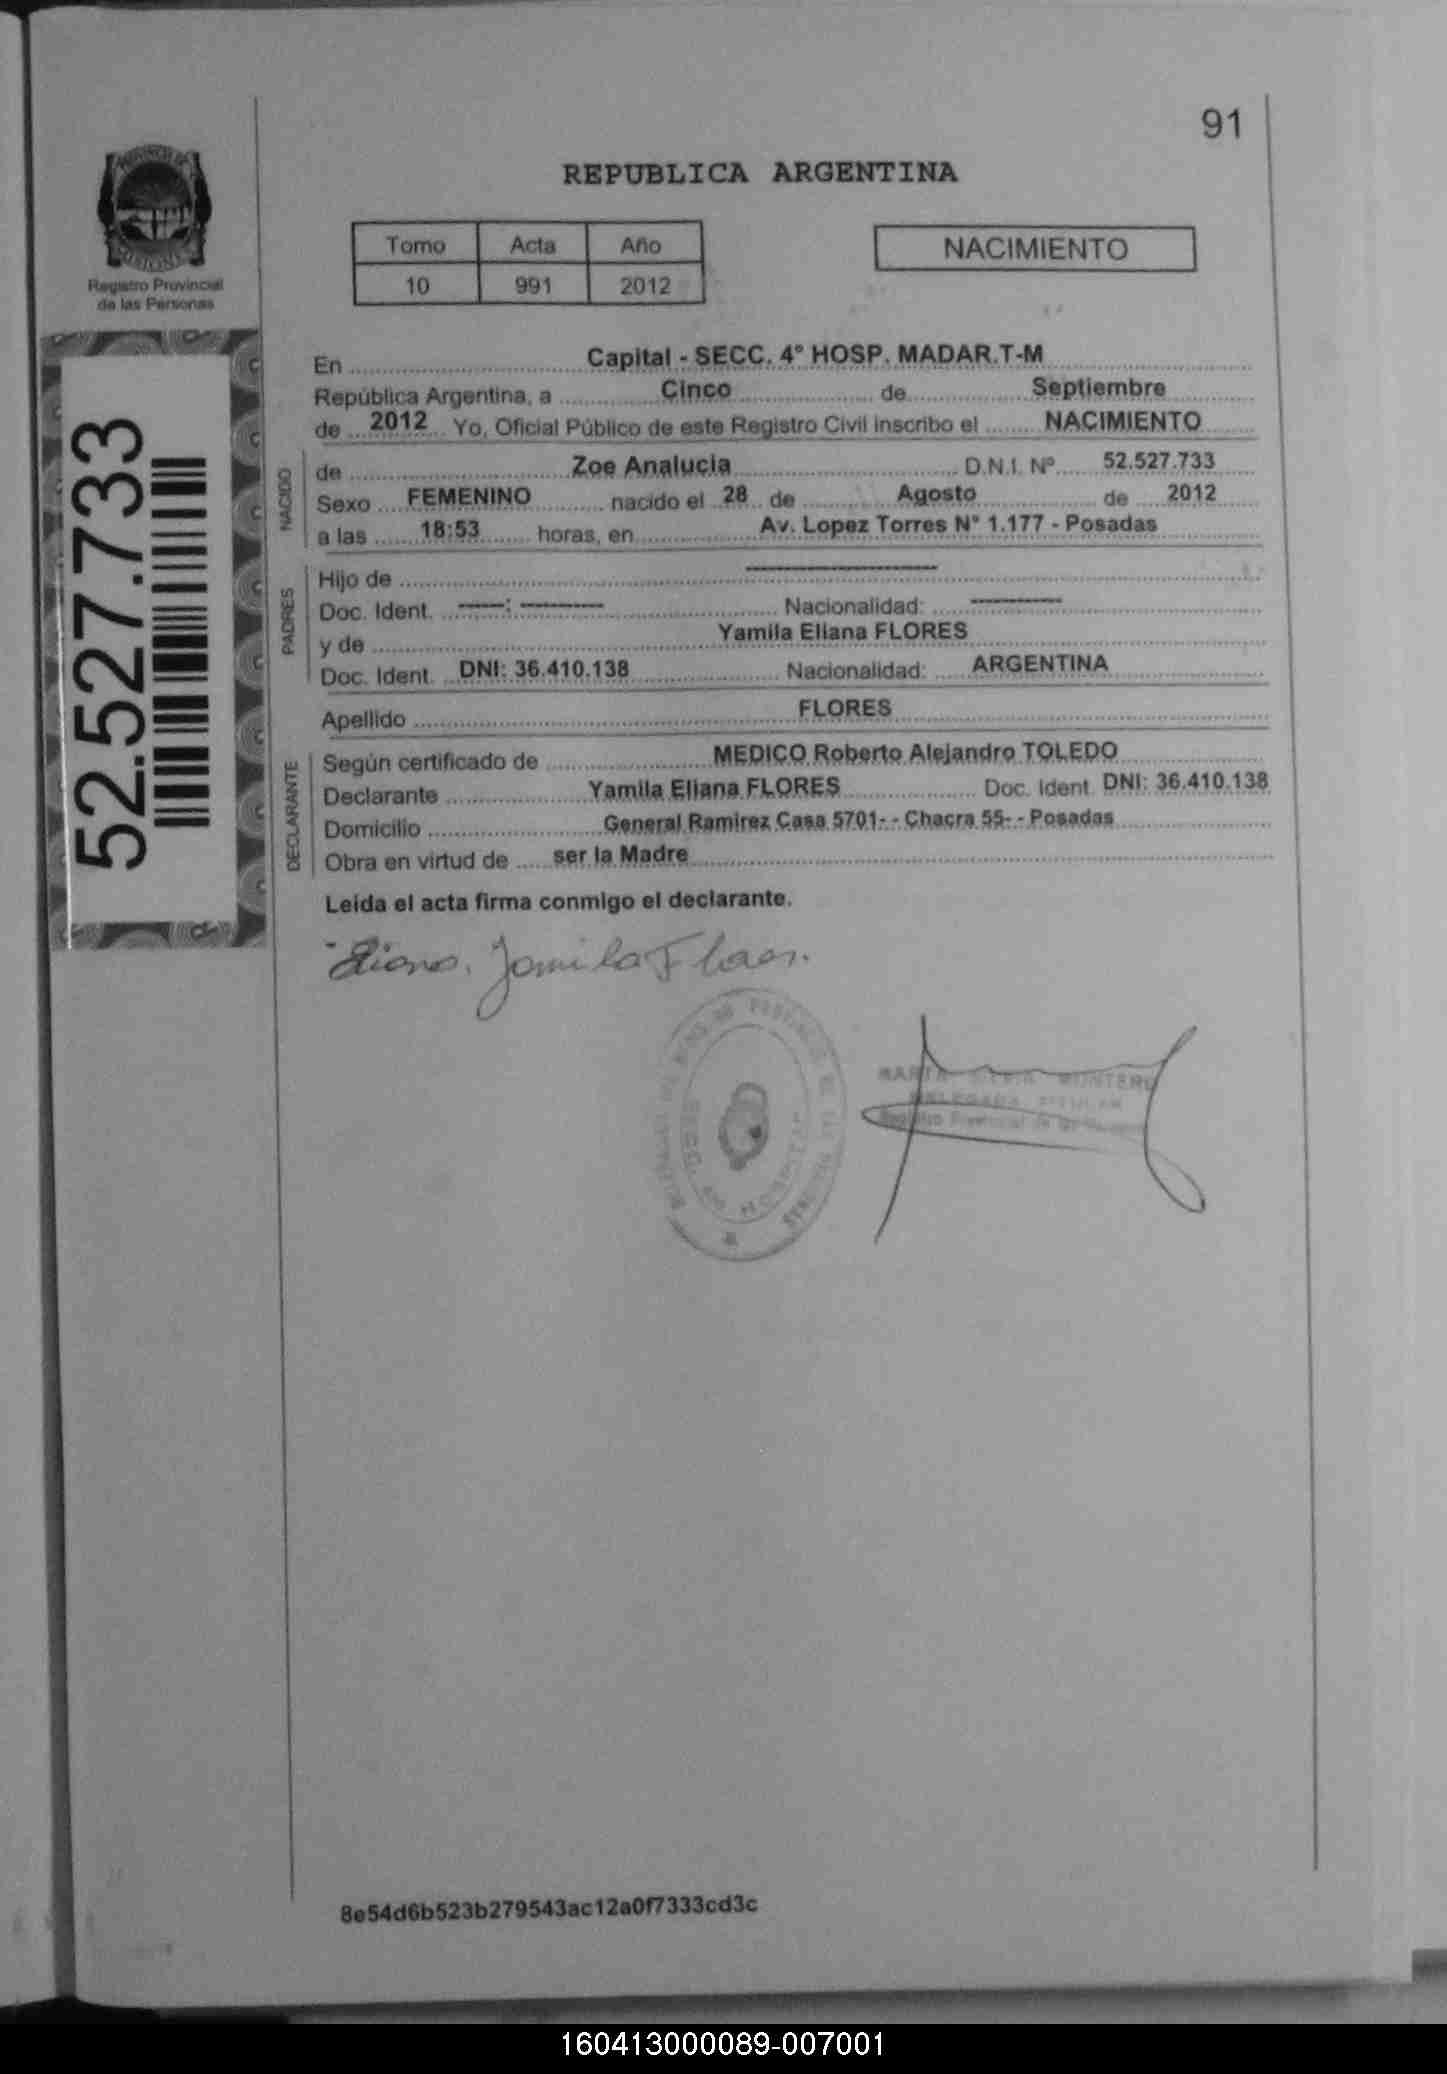 91
REPUBLICA ARGENTINA
Registro Provincial
de las Personas
Tomo Acta Año
10 991 2012
NACIMIENTO
52.527.733
En Capital - SECC. 4° HOSP. MADAR.T-M
República Argentina, a Cinco de Septiembre
de 2012 Yo, Oficial Público de este Registro Civil inscribo el NACIMIENTO
NACIDO
de Zoe Analucia D.N.I. Nº 52.527.733
Sexo FEMENINO nacido el 28 de Agosto de 2012
a las 18:53 horas, en Av. Lopez Torres N° 1.177 - Posadas
PADRES
Hijo de ----------
Doc. Ident. -----: --------- Nacionalidad: ----------
y de Yamila Eliana FLORES
Doc. Ident. DNI: 36.410.138 Nacionalidad: ARGENTINA
Apellido FLORES
DECLARANTE
Según certificado de MEDICO Roberto Alejandro TOLEDO
Declarante Yamila Eliana FLORES Doc. Ident. DNI: 36.410.138
Domicilio General Ramirez Casa 5701- - Chacra 55- - Posadas
Obra en virtud de ser la Madre
Leída el acta firma conmigo el declarante.
MONTERO
Registro Provincial de las
8e54d6b523b279543ac12a0f7333cd3c
160413000089-007001